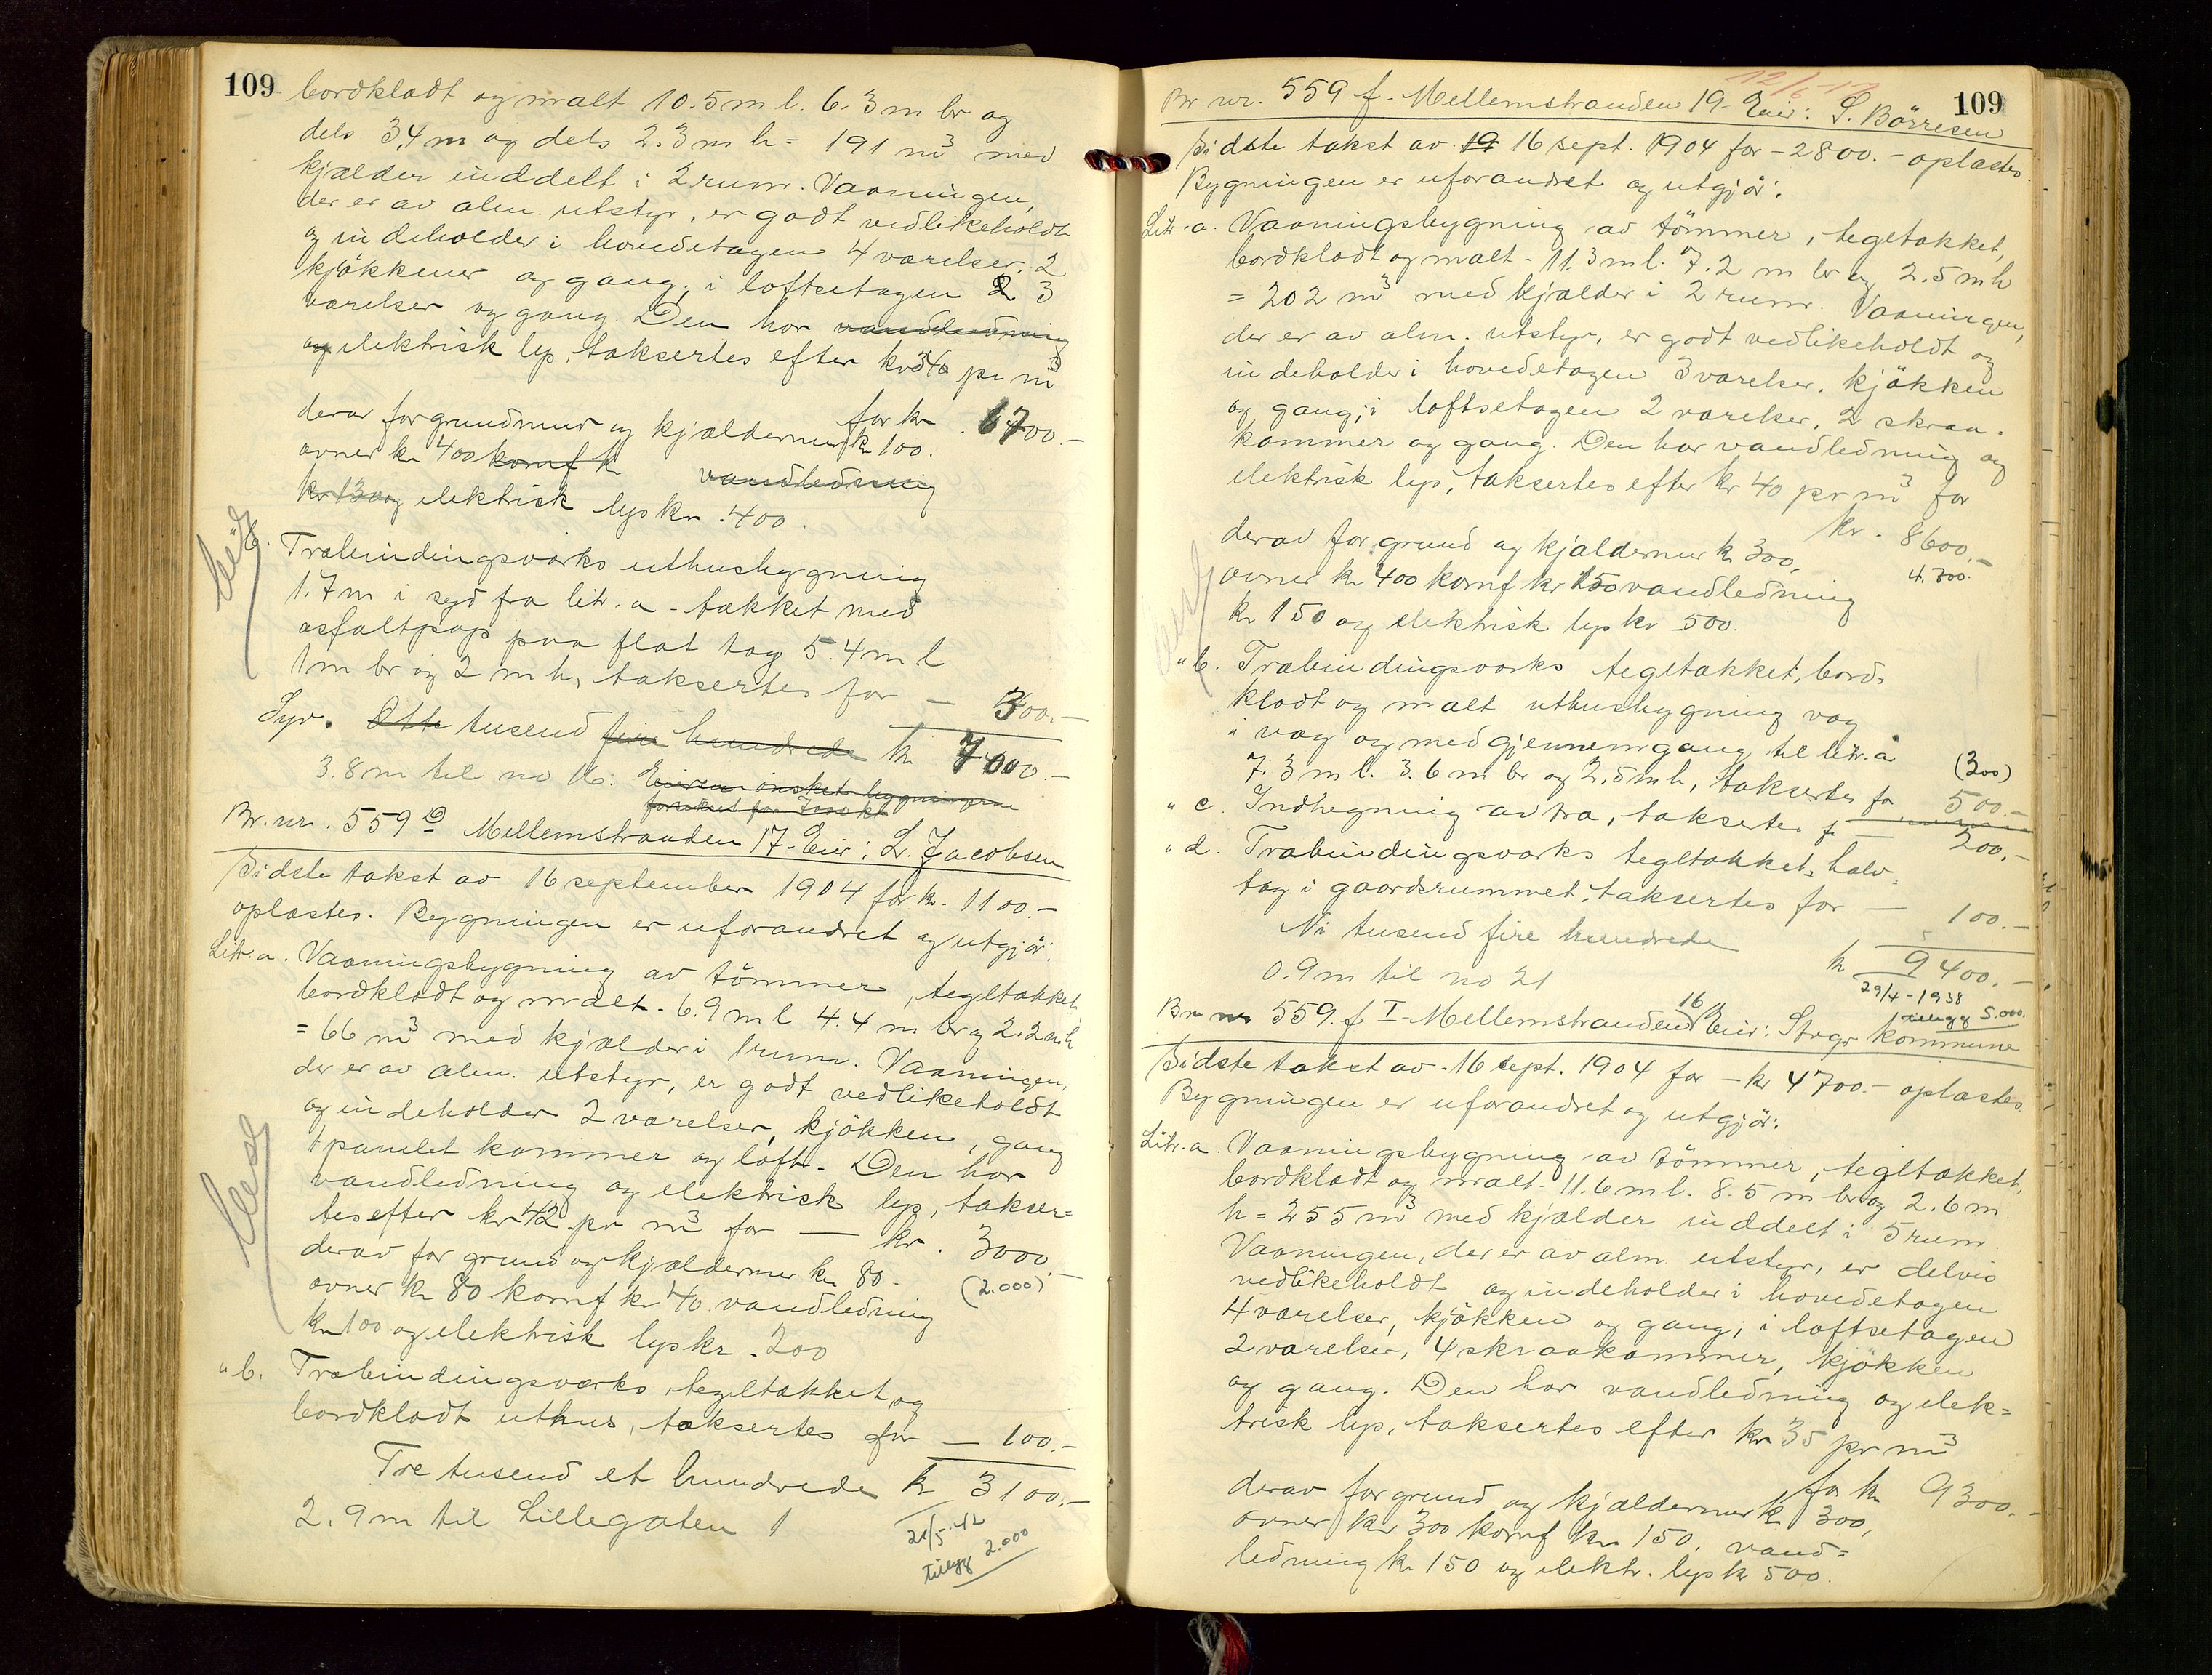 109
bordklædt og malt 10.5 m l. 6.3 m br og
dels 3,4 m og dels 2.3 m h = 191 m³ med
kjælder inddelt i 2 rum. Vaaningen,
der er av alm. utstyr, er godt vedlikeholdt
og indeholder i hovedetagen 4 værelser, 2
kjøkkener og gang; i loftsetagen 3
værelser og gang. Den har vandledning
og elektrisk lys, taksertes efter kr 34 pr m³
for kr. 6700.-
derav for grundmur og kjældermur kr 100.
ovner kr 400 komf kr vandledning
kr 130 og elektrisk lys kr. 400.
b. Træbindingsværks uthusbygning
1.7 m i syd fra litr. a - tækket med
asfaltpap paa flat tag 5.4 m l
1 m br og 2 m h, taksertes for — 300.-
Syv. Otte tusend fire hundrede kr 7000.-
3.8 m til no 16. Eieren ønsket bygningerne
forsikret for 7000 kr
Br. nr. 559 D Mellemstranden 17 - Eier: L. Jacobsen
Sidste takst av 16 september 1904 for kr. 1100.-
oplæstes. Bygningen er uforandret og utgjør:
Litr. a. Vaaningsbygning av tømmer, tegltækket,
bordklædt og malt - 6.9 m l 4.4 m br og 2.2 m h
= 66 m³ med kjælder i 1 rum. Vaaningen,
der er av alm. utstyr, er godt vedlikeholdt
og indeholder 2 værelser, kjøkken, gang
1 panelet kammer og loft. Den har
vandledning og elektrisk lys, takser=
tes efter kr 42 pr m³ for — kr. 3000.-
derav for grund og kjældermur kr 80.
(2.000)
ovner kr 80 komf kr 40 vandledning
kr 100 og elektrisk lys kr. 200
" b. Træbindingsværks, tegltækket og
bordklædt uthus, taksertes for — 100.-
Tre tusend et hundrede kr 3100.-
2.9 m til Lillegaten 1
21/5-42
tillegg 2.000
109
Br. nr. 559 f - Mellemstranden 19 - Eier: S. Börresen
Sidste takst av 19 16 sept. 1904 for - 2800.- oplæstes.
Bygningen er uforandret og utgjør:
Litr. a. Vaaningsbygning av tømmer, tegltækket,
bordklædt og malt - 11.3 m l. 7.2 m br og 2.5 m h
= 202 m³ med kjælder i 2 rum. Vaaningen,
der er av alm. utstyr, er godt vedlikeholdt og
indeholder i hovedetagen 3 værelser, kjøkken
og gang; i loftsetagen 2 værelser, 2 skraa-
kammer og gang. Den har vandledning og
elektrisk lys, taksertes efter kr 40 pr m³ for
kr. 8600.-
derav for grund og kjældermur kr 300,
4.300.-
ovner kr 400 komf kr 150 vandledning
kr 150 og elektrisk lys kr 500.
" b. Træbindingsværks tegltækket, bord-
klædt og malt uthusbygning væg
i væg og med gjennemgang til litr. a
(300)
7.3 m l. 3.6 m br og 2.5 m h, taksertes for 500.-
" c. Indhegning av træ, taksertes f. — 200.-
" d. Træbindingsværks tegltækket, halv-
tag i gaardsrummet, taksertes for — 100.-
Ni tusend fire hundrede
kr 9400.-
0.9 m til no 21
29/4-1938
tillegg 5.000.
Br nr 559. f I - Mellemstranden 16 Eier: Stvgr kommune
Sidste takst av 16 sept. 1904 for — kr 4700.- oplæstes.
Bygningen er uforandret og utgjør:
Litr. a. Vaaningsbygning av tømmer, tegltækket,
bordklædt og malt - 11.6 m l. 8.5 m br og 2.6 m
h = 255 m³ med kjælder inddelt i 5 rum.
Vaaningen, der er av alm. utstyr, er delvis
vedlikeholdt og indeholder i hovedetagen
4 værelser, kjøkken og gang; i loftsetagen
2 værelser, 4 skraakammer, kjøkken
og gang. Den har vandledning og elek=
trisk lys, taksertes efter kr 35 pr m³
for kr 9300.-
derav for grund og kjældermur kr 300,
ovner kr 300 komf kr 150, vand=
ledning kr 150 og elektr. lys kr 500.